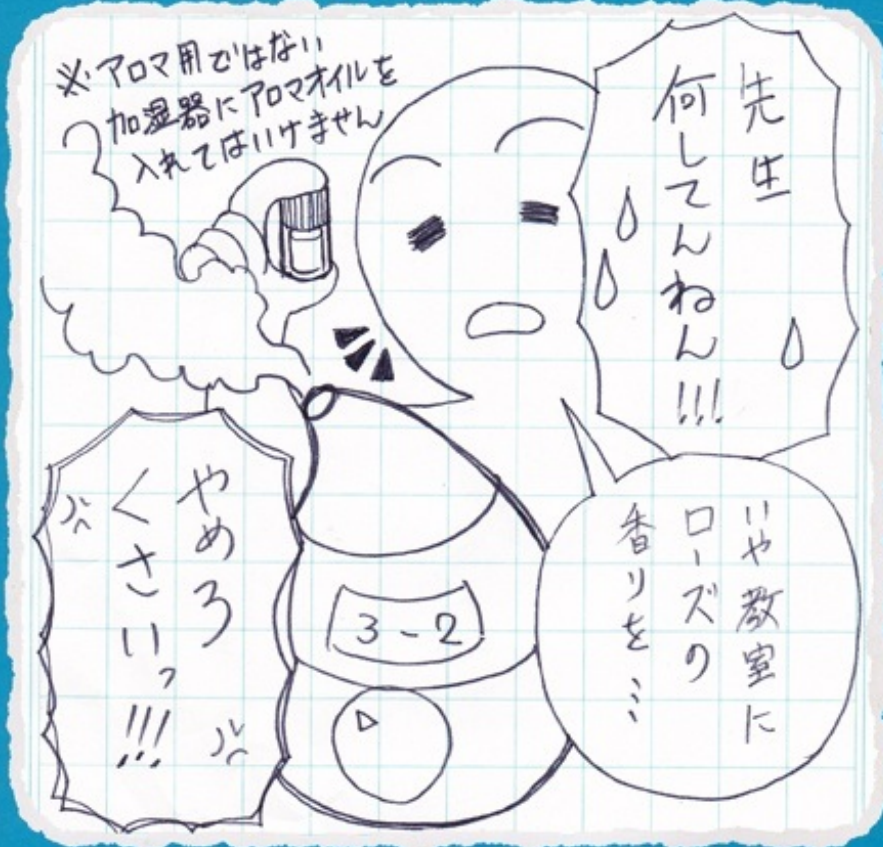 ※アロマ用ではない
加湿器にアロマオイルを
入れてはいけません
先生
何してんねん!!!
いや教室に
ローズの
香りを…
やめろ
くさいっ!!!
3-2